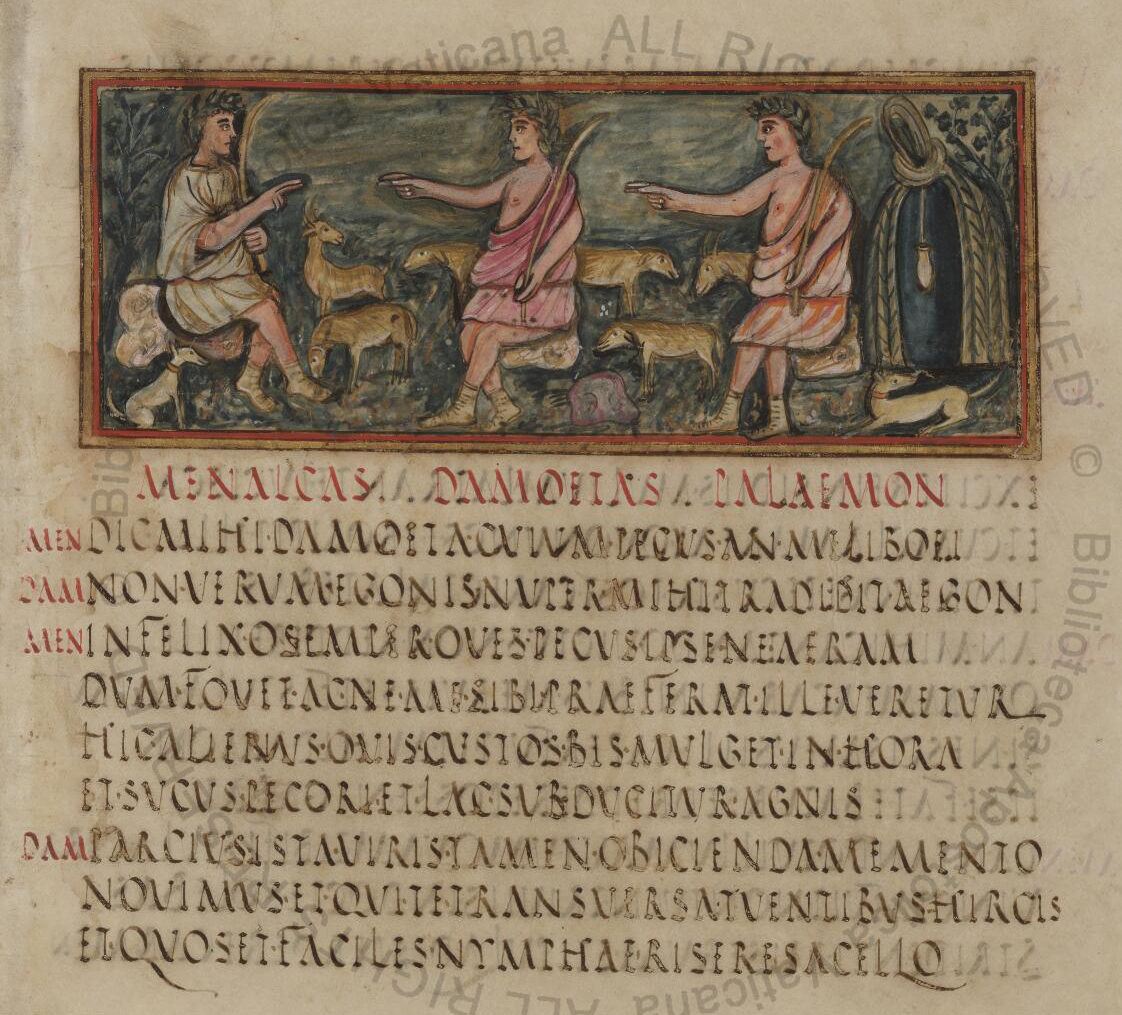 MENALCAS DAMOETAS PALAEMON
MEN DIC·MIHI·DAMOETA·CVIVM·PECVS·AN·MELIBOEI
DAM NON·VERVM·EGONIS·NVPER·MIHI·TRADIDIT·AEGON
MEN INFELIX·O·SEMPER·OVES·PECVS·IPSE·NEAERAM
DVM·FOVET·AC·NE·ME·SIBI·PRAEFERAT·ILLE·VERETVR
HIC·ALIENVS·OVIS·CVSTOS·BIS·MVLGET·IN·HORA
ET·SVCVS·PECORI·ET·LAC·SVBDVCITVR·AGNIS
DAM PARCIVS·ISTA·VIRIS·TAMEN·OBICIENDA·MEMENTO
NOVIMVS·ET·QVI·TE·TRANSVERSA·TVENTIBVS·HIRCIS
ET·QVO·SET·FACILES·NYMPHAE·RISERE·SACELLO